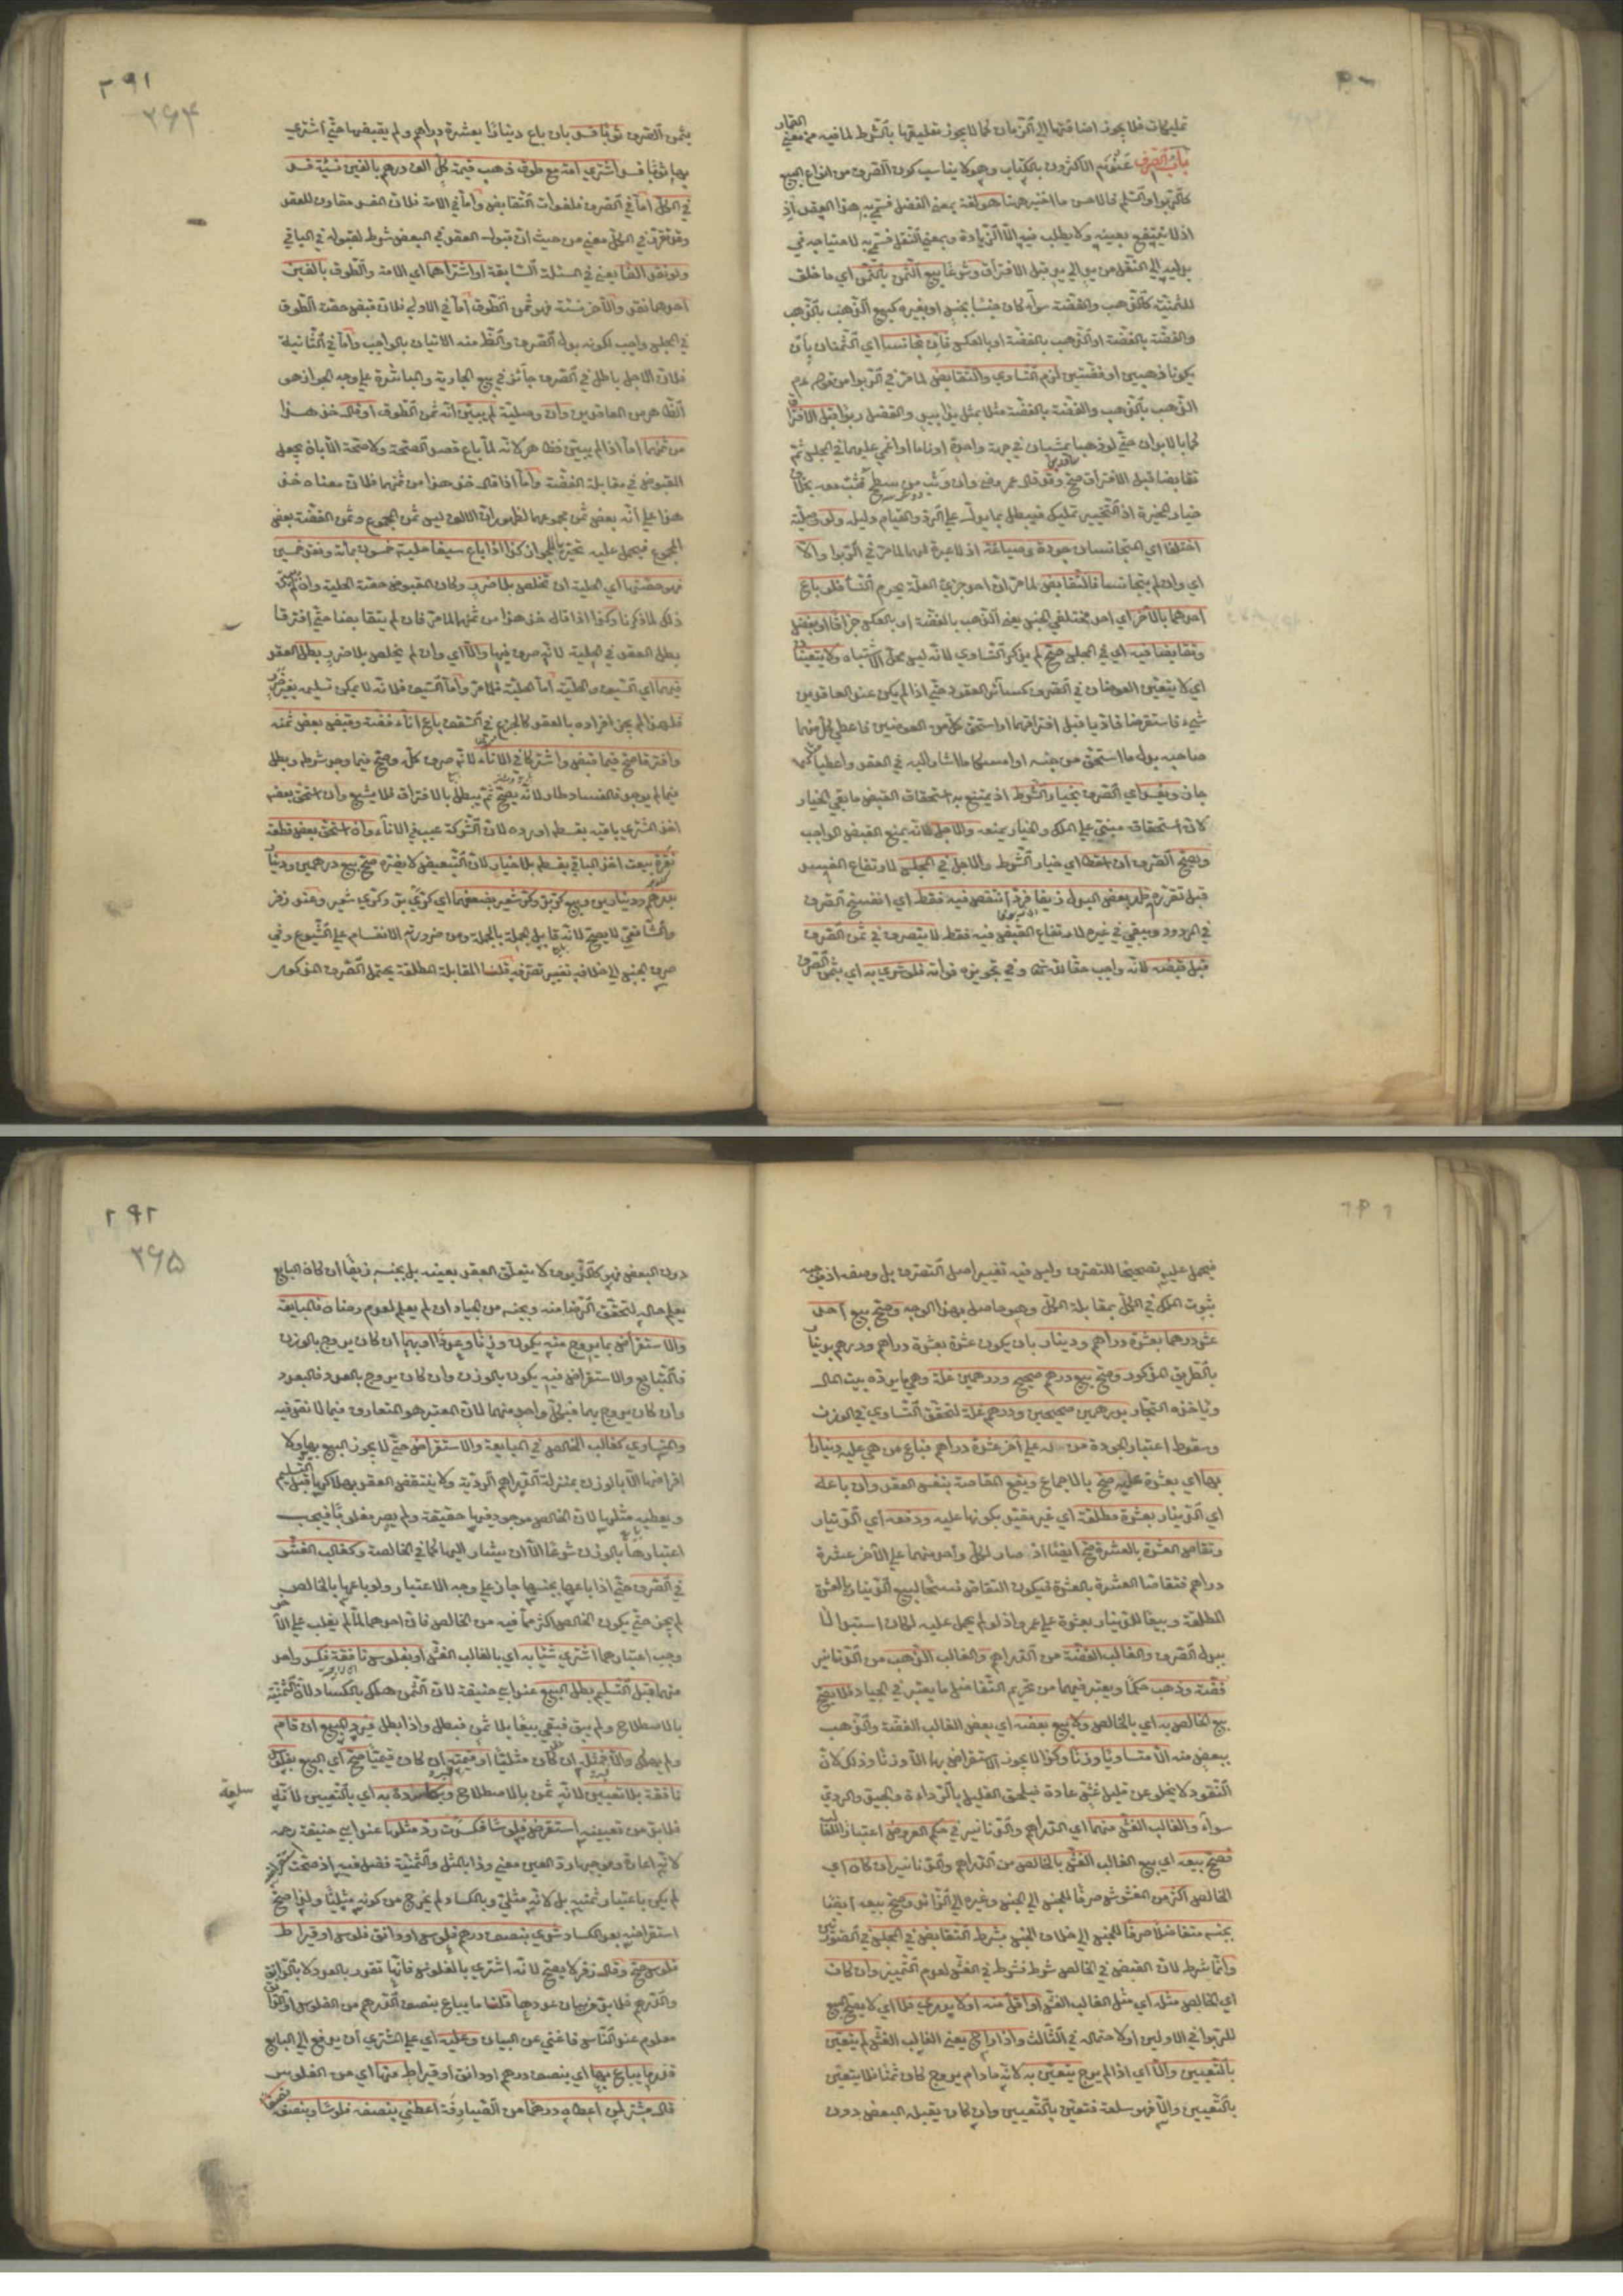 تمليكات فلا يجوز اضافتها الى الزمان كما لا يجوز تعليقها بالشرط لما فيه من معنى القمار
باب الصرف عنونه الاكثرون بالكتاب وهو لا يناسب كون الصرف من انواع البيع
كالربوا والسلم فالاحسن ما اختير ههنا هو لغة بمعنى الفضل فسمى به هذا العقد اذ
اذ لا ينتفع بعينه ولا يطلب فيه الا الزيادة وبمعنى النقل فسمى به لاحتياجه في
بدليه الى النقل من يد الى يد قبل الافتراق وشرعا بيع الثمن بالثمن اي ما خلق
للثمنية كالذهب والفضة سواء كان جنسا بجنس او بغيره كبيع الذهب بالذهب
والفضة بالفضة او الذهب بالفضة او بالعكس فان تجانسا اي الثمنان بان
يكونا ذهبين او فضتين لزم التساوي والتقابض لما مر في الربوا من قوله عم
الذهب بالذهب والفضة بالفضة مثلا بمثل يدا بيد والفضل ربوا قبل الافتراق
كما بالابدان حتى لو ذهبا يمشيان في جهة واحدة او ناما او اغمي عليهما في المجلس ثم
تقابضا قبل الافتراق صح وقد قال عمر رضي وان وثب من سطح فثب معه بخلاف
خيار المخيرة اذ التخيير تمليك فيبطل بما يدل على الرد والقيام دليله ولو وصلية
اختلفا اي المتجانسان جودة وصياغة اذ لا عبرة لهما لما مر في الربوا والا
اي وان لم يتجانسا فالتقابض لما مر ان احد جزئي العلة يحرم النسأ فلو باع
احدهما بالآخر اي احد مختلفي الجنس يعني الذهب بالفضة او بالعكس جزافا او بفضل
وتقابضا فيه اي في المجلس صح لم يذكر التساوي لانه ليس محل الاشتباه ولا يتعينان
اي لا يتعين العوضان في الصرف كسائر العقود حتى اذا لم يكن عند العاقدين
شيء فاستقرضا فاديا قبل افتراقهما او استحق كل من العوضين فاعطى كل منهما
صاحبه بدل ما استحق من جنسه او امسكا ما اشارا اليه في العقد واعطيا مثلهما
جاز ويفسد اي الصرف بخيار الشرط اذ يمتنع به استحقاق القبض ما بقي الخيار
لان استحقاقه مبتنى على الملك والخيار يمنعه والاجل لانه يمنع القبض الواجب
وصح الصرف ان اسقطا اي خيار الشرط والاجل في المجلس لارتفاع المفسد
قبل تقرره ظهر بعض البدل زيفا فرد انتقض فيه فقط اي انفسخ الصرف
في المردود وبقي في غيره لارتفاع القبض فيه فقط لا يتصرف في ثمن الصرف
قبل قبضه لانه واجب حقا لله تعالى وفي تجويزه فواته فلو شرى به اي بثمن الصرف
٢٩١
٣٦٤
بثمن الصرف ثوبا فسد بان باع دينارا بعشرة دراهم ولم يقبضها حتى اشترى
بها ثوبا فسد اشترى امة مع طوق ذهب قيمة كل الف درهم بالفين نسئة فسد
في الكل اما في الصرف فلفوات التقابض واما في الامة فلان الفسد مقارن للعقد
وقد تقرر في الكل معنى من حيث ان قبول العقد في البعض شرط لقبوله في الباقي
ولو نقد الفا يعني في المسئلة السابقة او اشتراهما اي الامة والطوق بالفين
احدهما نقد والآخر نسئة فهو ثمن الطوق اما في الاولى فلان قبض حصة الطوق
في المجلس واجب لكونه بدل الصرف والظاهر منه الاتيان بالواجب واما في الثانية
فلان الاجل باطل في الصرف جائز في بيع الجارية والمباشرة على وجه الجواز هو
الظاهر من العاقدين وان وصلية لم يبين انه ثمن الطوق او قال خذ هذا
من ثمنهما اما اذا لم يبين فظاهر لانه لما باع قصد الصحة ولا صحة الا بان يجعل
المقبوض في مقابلة الفضة واما اذا قال خذ هذا من ثمنهما فلان معناه خذ
هذا على انه بعض ثمن مجموعهما لظهور ان الالف ليس ثمن المجموع وثمن الفضة بعض
المجموع فيحمل عليه تحريا للجواز كذا اذا باع سيفا حليته خمسون بمائة ونقد خمسين
فهو حصتها اي الحلية ان تخلص بلا ضرر وكان المقبوض حصة الحلية وان لم يبين
ذلك لما ذكرنا وكذا اذا قال خذ هذا من ثمنهما لما مر فان لم يتقابضا حتى افترقا
بطل العقد في الحلية لانه صرف فيها والا اي وان لم يتخلص بلا ضرر بطل العقد
فيهما اي السيف والحلية اما الحلية فلما مر واما السيف فلانه لا يمكن تسليمه بغير ضرر
فلهذا لم يجز افراده بالعقد كالجزع في السقف باع اناء فضة وقبض بعض ثمنه
وافترقا صح فيما قبض واشتركا في الاناء لانه صرف كله وصح فيما وجد شرطه وبطل
فيما لم يوجد فالفساد طار لانه يصح ثم يبطل بالافتراق فلا يشيع وان استحق بعضه
اخذ المشتري باقيه بقسطه او رده لان الشركة عيب في الاناء وان استحق بعض قطعة
نقرة بيعت اخذ الباقي بقسطه بلا خيار لان التبعيض لا يضره صح بيع درهمين ودينار
بدرهم ودينارين وبيع كر بر وكر شعير بضعفهما اي كري بر وكري شعير وعند زفر
والشافعي لا يصح لانه قابل الجملة بالجملة ومن ضرورته الانقسام على الشيوع وفي
صرف الجنس الى خلافه تغيير تصرفه قلنا المقابلة المطلقة يحتمل الصرف المذكور
فيحمل عليه تصحيحا للتصرف وليس فيه تغيير اصل التصرف بل وصفه اذ موجبه
ثبوت الملك في الكل بمقابلة الكل وهو حاصل بهذا الوجه وصح بيع احد
عشر درهما بعشرة دراهم ودينار بان يكون عشرة بعشرة دراهم ودرهم بدينار
بالطريق المذكور وصح بيع درهم صحيح ودرهمين غلة وهي ما يرده بيت المال
ويأخذه التجار بدرهمين صحيحين ودرهم غلة لتحقق التساوي في الوزن
وسقوط اعتبار الجودة من له على آخر عشرة دراهم فباع من هي عليه دينارا
بها اي بعشرة عليه صح بالاجماع ويقع المقاصة بنفس العقد وان باعه
اي الدينار بعشرة مطلقة اي غير مقيد بكونها عليه ودفعه اي الدينار
وتقاصا العشرة بالعشرة صح ايضا اذ صار لكل واحد منهما على الآخر عشرة
دراهم فتقاصا العشرة بالعشرة فيكون التقاص فسخا لبيع الدينار بالعشرة
المطلقة وبيعا للدينار بعشرة على عمرو اذ لو لم يحمل عليه لكان استبدالا
ببدل الصرف والغالب الفضة من الدراهم والغالب الذهب من الدنانير
فضة وذهب حكما ويعتبر فيهما من تحريم التفاضل ما يعتبر في الجياد فلا يصح
بيع الخالص به اي بالخالص ولا بيع بعضه اي بعض الغالب الفضة والذهب
ببعض منه الا متساويا وزنا وكذا لا يجوز الاستقراض بها الا وزنا وذلك لان
النقود لا يخلو عن قليل غش عادة فيلحق القليل بالرداءة والجيد والردي
سواء والغالب الغش منهما اي الدراهم والدنانير في حكم العروض اعتبارا للغالب
فصح بيعه اي بيع الغالب الغش بالخالص من الدراهم والدنانير ان كان اي
الخالص اكثر من المغشوش صرفا للجنس الى الجنس وغيره الى الزائد وصح بيعه ايضا
بجنسه متفاضلا صرفا للجنس الى خلاف الجنس بشرط التقابض في المجلس في الصورتين
وانما شرط لان القبض في الخالص شرط فشرط في الغش لعدم التمييز وان كان
اي الخالص مثله اي مثل الغالب الغش او اقل منه او لا يدرى فلا اي لا يصح البيع
للربوا في الاولين ولاحتماله في الثالث واذا راج يعني الغالب الغش لم يتعين
بالتعيين والا اي اذا لم يرج يتعين به لانه ما دام يروج كان ثمنا فلا يتعين
بالتعيين والا فهو سلعة فتعين بالتعيين وان كان يقبله البعض دون
٢٩٢
٣٦٥
دون البعض فهو كالزيوف لا يتعلق العقد بعينه بل بجنسه زيفا ان كان البايع
يعلم حاله لتحقق الرضا منه وبجنسه من الجياد ان لم يعلم لعدم رضاه فالمبايعة
والاستقراض بما يروج منه يكون وزنا وعددا او بهما ان كان يروج بالوزن
فالتبايع والاستقراض فيه يكون بالوزن وان كان يروج بالعدد فالبعدد
وان كان يروج بهما فبكل واحد منهما لان المعتبر هو المتعارف فيما لا نص فيه
والمتساوي كغالب الخالص في المبايعة والاستقراض حتى لا يجوز البيع بها ولا
اقراضها الا بالوزن بمنزلة الدراهم الردية ولا ينتقض العقد بهلاكها قبل التسليم
ويعطيه مثلها لان الخالص موجود فيها حقيقة ولم يصر مغلوبا فيجب
اعتبارها بالوزن شرعا الا ان يشار اليها كما في الخالصة وكغالب الغش
في الصرف حتى اذا باعها بجنسها جاز على وجه الاعتبار ولو باعها بالخالص
لم يجز حتى يكون الخالص اكثر مما فيه من الخالص فان احدهما لما لم يغلب على الآخر
وجب اعتبارهما اشترى شيئا به اي بالغالب الغش او بفلوس نافقة فكسد واحد
منهما قبل التسليم بطل البيع عند ابي حنيفة لان الثمن هلك بالكساد لان الثمنية
بالاصطلاح ولم يبق فبقي بيعا بلا ثمن فبطل واذا بطل فيرد المبيع ان قام
ولم يهلك والا فمثله ان كان مثليا او قيمته ان كان قيميا صح اي البيع بفلوس
نافقة بلا تعيين لانه ثمن بالاصطلاح وبكاسدة به اي بالتعيين لانه
سلعة
فلا بد من تعيينه استقرض فلوسا فكسدت رد مثلها عند ابي حنيفة رحمه
لانه اعارة وموجبها رد العين معنى وذا بالمثل والثمنية فضل فيه اذ صحة استقراضه
لم يكن باعتبار ثمنيته بل لانه مثلي وبالكساد لم يخرج من كونه مثليا ولذا صح
استقراضه بعد الكساد شرى بنصف درهم فلوس او دانق فلوس او قيراط
فلوس صح وقال زفر لا يصح لانه اشترى بالفلوس فانها تقدر بالعدد لا بالدانق
والدرهم فلا بد من بيان عددها قلنا ما يباع بنصف الدرهم من الفلوس او الدانق
معلوم عند الناس فاغنى عن البيان وعليه اي على المشتري ان يدفع الى البايع
قدر ما يباع بها اي بنصف درهم او دانق او قيراط منها اي من الفلوس
قال مشتر لمن اعطاه درهما من الصيارفة اعطني بنصفه فلوسا وبنصفه نصفا